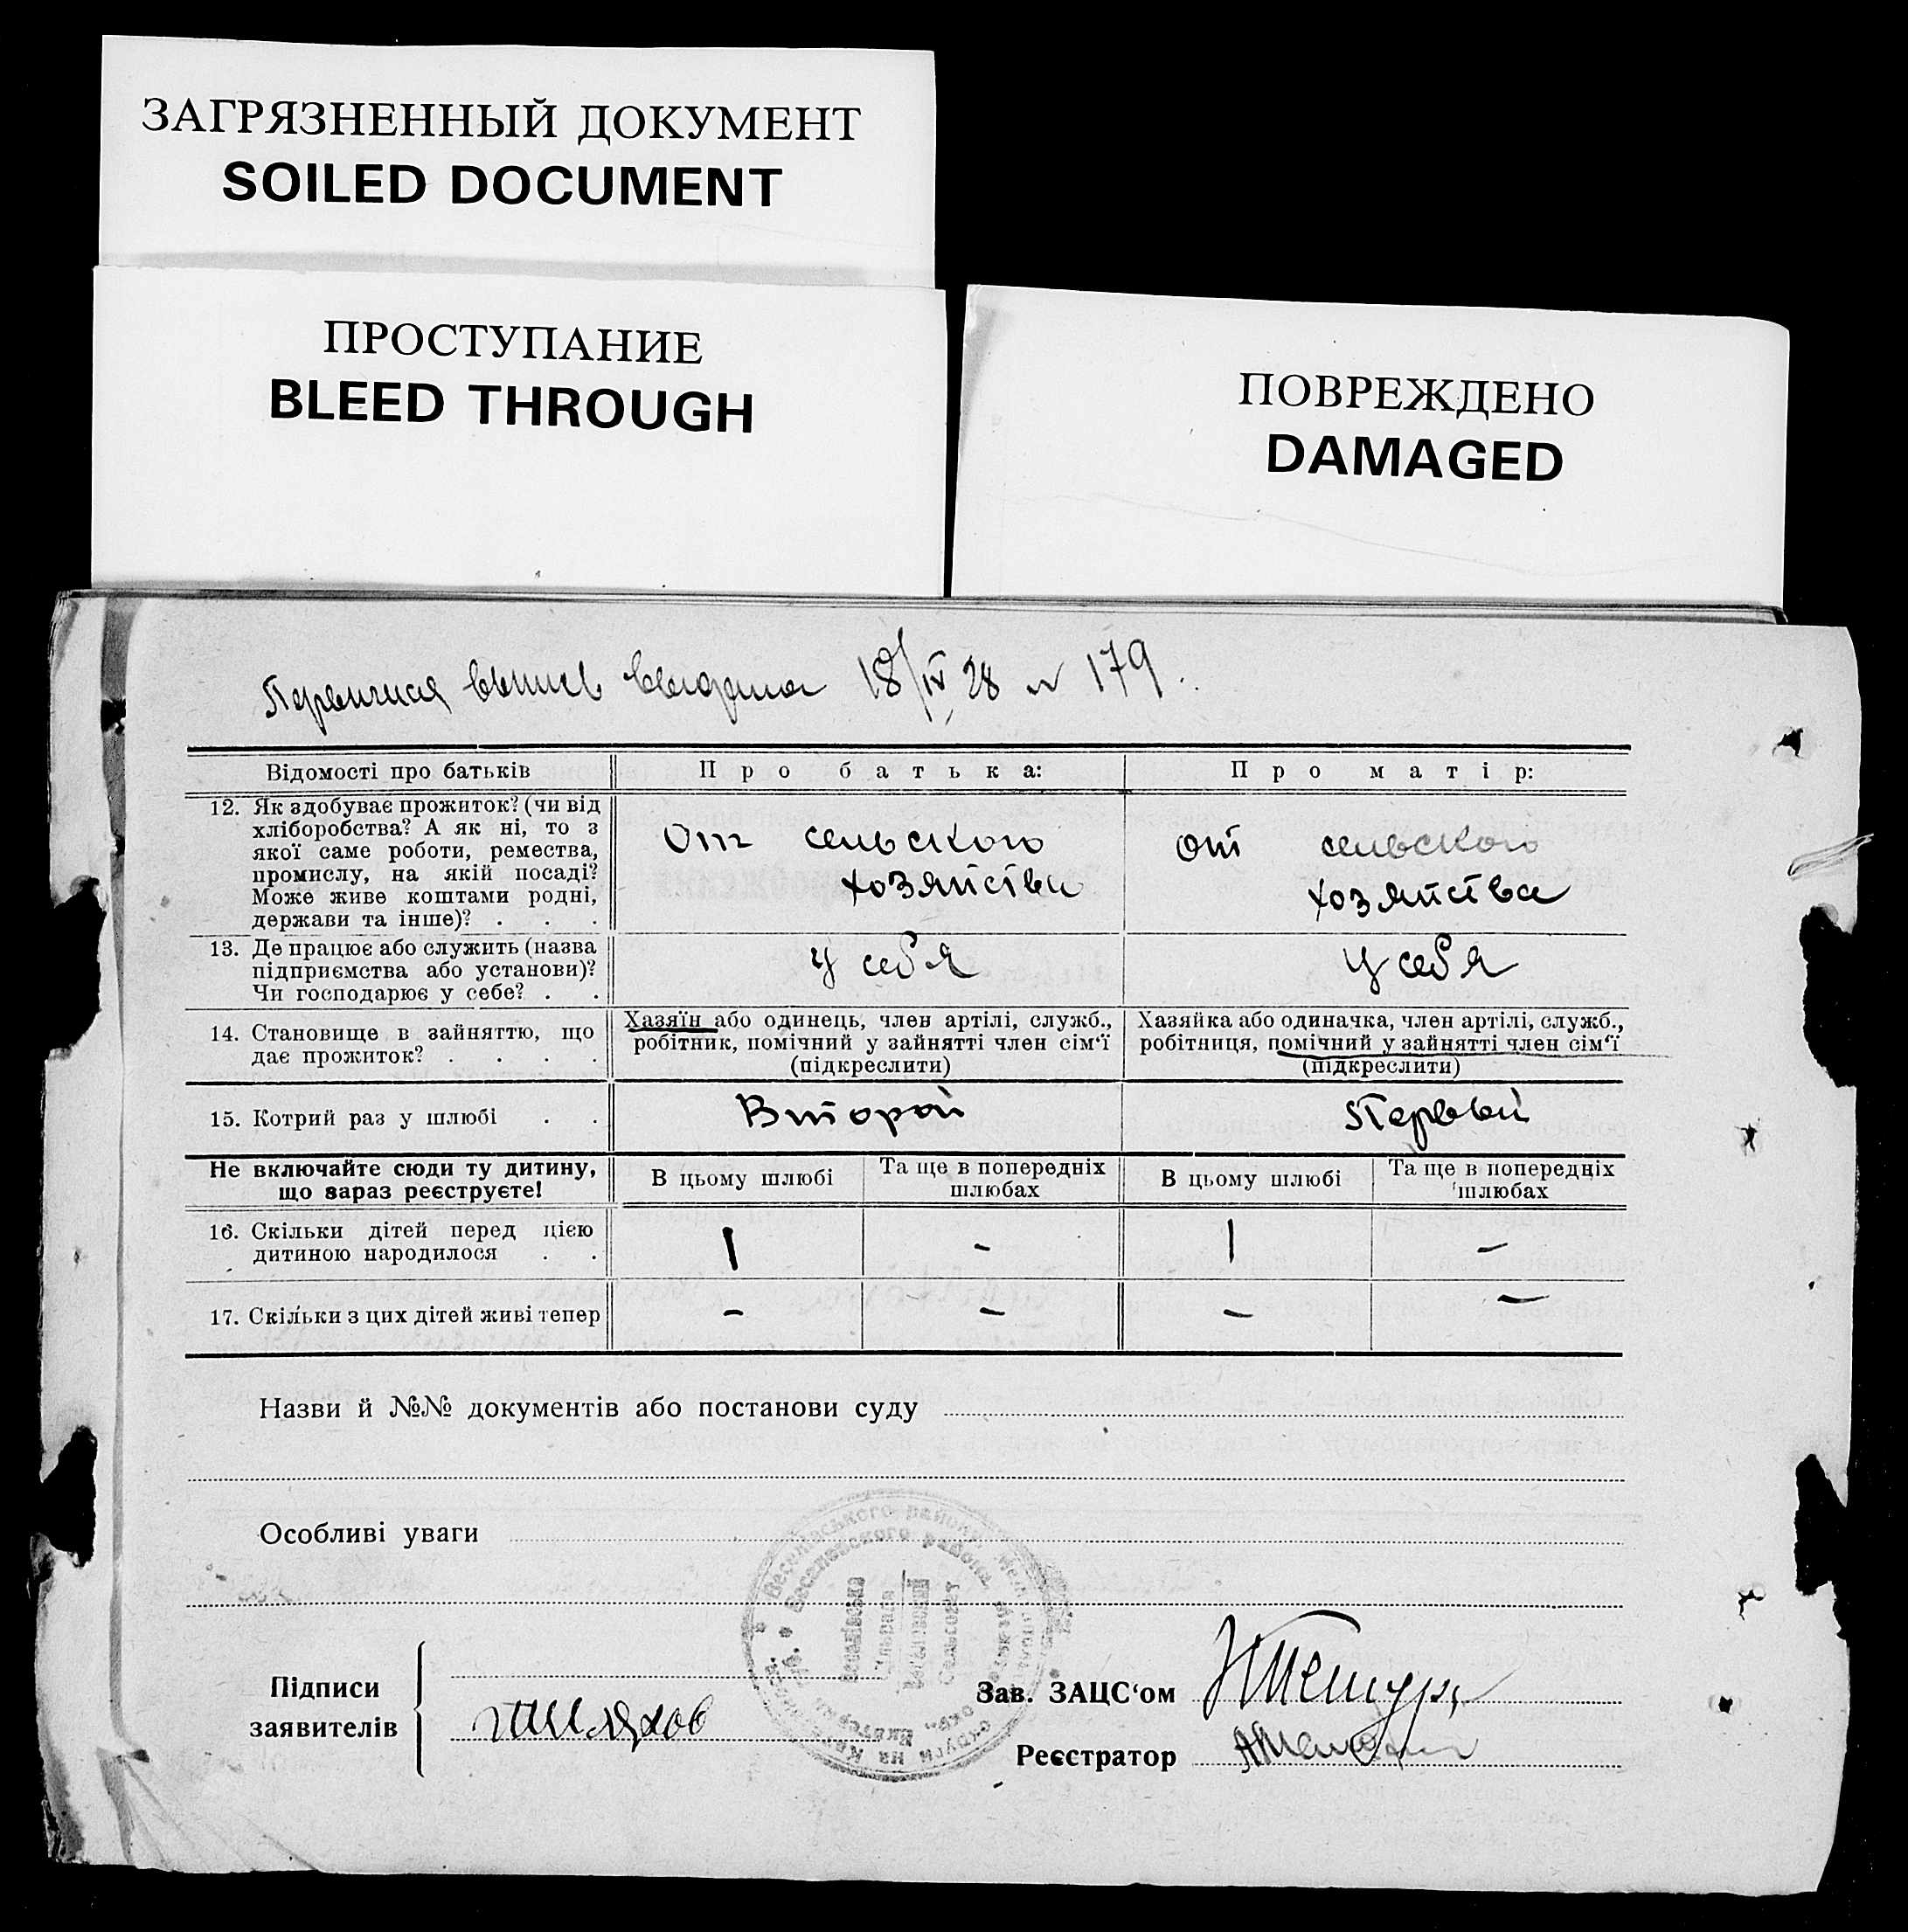 ЗАГРЯЗНЕННЫЙ ДОКУМЕНТ
SOILED DOCUMENT
ПРОСТУПАНИЕ
BLEED THROUGH
ПОВРЕЖДЕНО
DAMAGED
18/IV 28 № 179.
Відомості про батьків Про батька: Про матір:
12. Як здобуває прожиток? (чи від
хліборобства? А як ні, то з
якої саме роботи, ремества,
промислу, на якій посаді?
Може живе коштами родні,
держави та інше)? . . .
От сельского
хозяйства
от сельского
хозяйства
13. Де працює або служить (назва
підприємства або установи)?
Чи господарює у себе? . .
у себя
у себя
14. Становище в зайняттю, що
дає прожиток? . . . .
Хазяїн або одинець, член артілі, служб.,
робітник, помічний у зайнятті член сім'ї
(підкреслити)
Хазяйка або одиначка, член артілі, служб.,
робітниця, помічний у зайнятті член сім'ї
(підкреслити)
15. Котрий раз у шлюбі . . Второй Первый
Не включайте сюди ту дитину,
що зараз реєструєте!
В цьому шлюбі
Та ще в попередніх
шлюбах
В цьому шлюбі
Та ще в попередніх
шлюбах
16. Скільки дітей перед цією
дитиною народилося . .
1 - 1 -
17. Скільки з цих дітей живі тепер - - - -
Назви й №№ документів або постанови суду
Особливі уваги
Веселівського району
Веселовского района
Підписи
заявителів
Зав. ЗАЦС'ом
Реєстратор